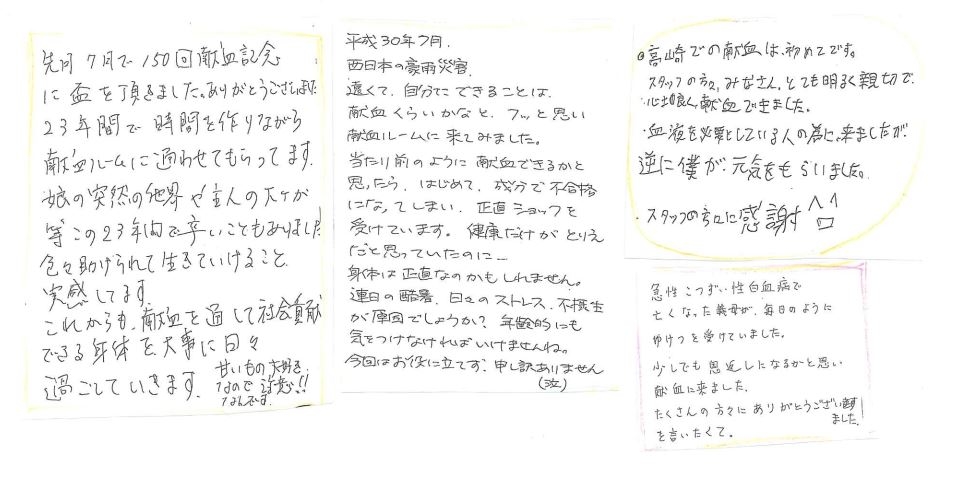 先月7月で150回献血記念
に盃を頂きました。ありがとうございました
23年間で時間を作りながら
献血ルームに通わせてもらってます。
娘の突然の他界や主人の大ケガ
等この23年間で辛いこともありました
色々助けられて生きていけること
実感してます。
これからも、献血を通して社会貢献
できる身体を大事に日々
過ごしていきます。
甘いもの大好き
なので注意!!
なんです。
平成30年7月.
西日本の豪雨災害.
遠くて、自分にできることは、
献血くらいかなと、フッと思い
献血ルームに来てみました。
当たり前のように献血できるかと
思ったら、はじめて、成分で不合格
になってしまい、正直ショックを
受けています。健康だけがとりえ
だと思っていたのに…
身体は正直なのかもしれません。
連日の酷暑、日々のストレス、不摂生
が原因でしょうか?年齢的にも
気をつけなければいけませんね。
今回はお役に立てず、申し訳ありません
(泣)
高崎での献血は、初めてです。
スタッフの方々、みなさん、とても明るく親切で、
心地良く献血できました。
・血液を必要としている人の為に、来ましたが、
逆に僕が、元気をもらいました。
・スタッフの方々に感謝
急性こつずい性白血病で
亡くなった義母が、毎日のように
ゆけつを受けていました。
少しでも恩返しになるかと思い
献血に来ました。
たくさんの方々にありがとうございました
を言いたくて。